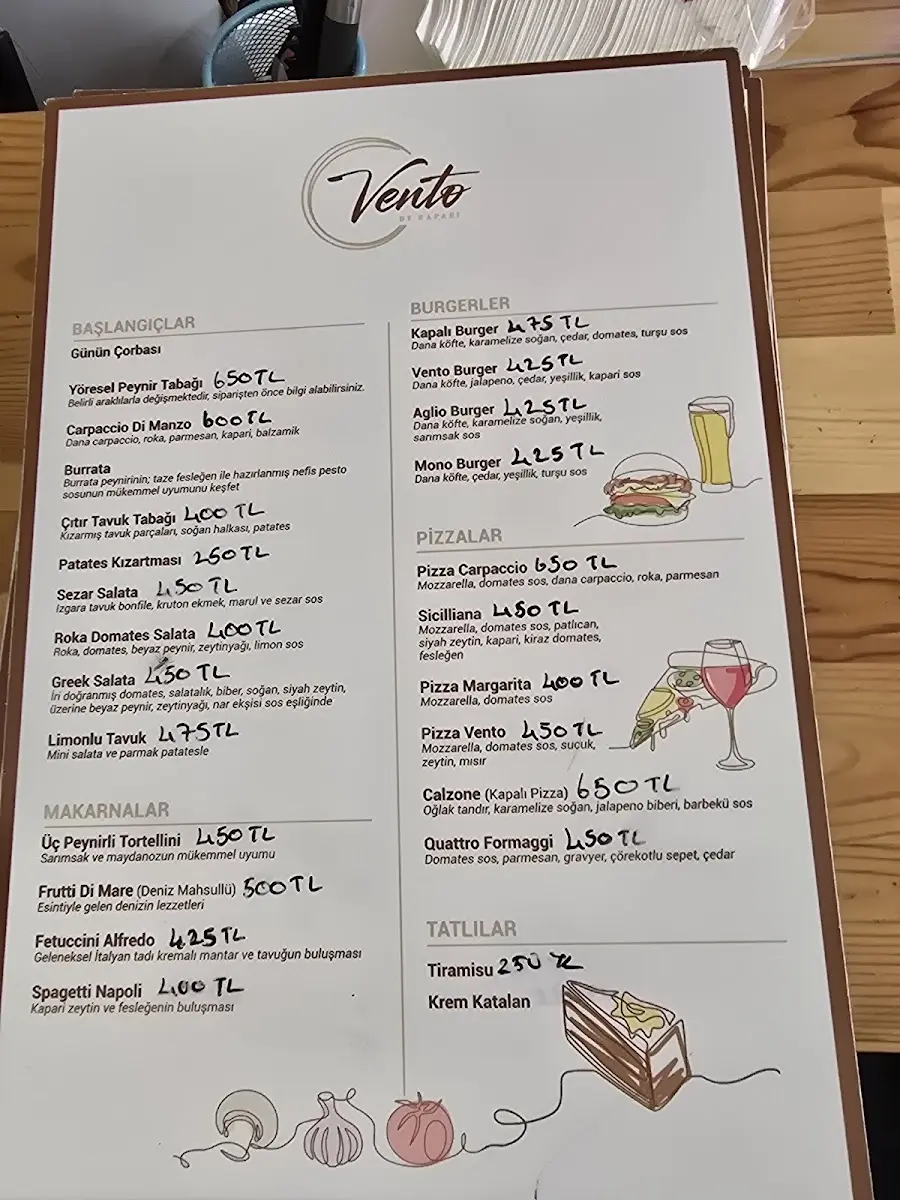 Vento
BY KAPARI
BAŞLANGIÇLAR
Günün Çorbası
Yöresel Peynir Tabağı 650 TL
Belirli aralıklarla değişmektedir, siparişten önce bilgi alabilirsiniz.
Carpaccio Di Manzo 600 TL
Dana carpaccio, roka, parmesan, kapari, balzamik
Burrata
Burrata peynirinin; taze fesleğen ile hazırlanmış nefis pesto
sosunun mükemmel uyumunu keşfet
Çıtır Tavuk Tabağı 400 TL
Kızarmış tavuk parçaları, soğan halkası, patates
Patates Kızartması 250 TL
Sezar Salata 450 TL
Izgara tavuk bonfile, kruton ekmek, marul ve sezar sos
Roka Domates Salata 400 TL
Roka, domates, beyaz peynir, zeytinyağı, limon sos
Greek Salata 450 TL
İri doğranmış domates, salatalık, biber, soğan, siyah zeytin,
üzerine beyaz peynir, zeytinyağı, nar ekşisi sos eşliğinde
Limonlu Tavuk 475 TL
Mini salata ve parmak patatesle
MAKARNALAR
Üç Peynirli Tortellini 450 TL
Sarımsak ve maydanozun mükemmel uyumu
Frutti Di Mare (Deniz Mahsullü) 500 TL
Esintiyle gelen denizin lezzetleri
Fetuccini Alfredo 425 TL
Geleneksel İtalyan tadı kremalı mantar ve tavuğun buluşması
Spagetti Napoli 400 TL
Kapari zeytin ve fesleğenin buluşması
BURGERLER
Kapalı Burger 475 TL
Dana köfte, karamelize soğan, çedar, domates, turşu sos
Vento Burger 425 TL
Dana köfte, jalapeno, çedar, yeşillik, kapari sos
Aglio Burger 425 TL
Dana köfte, karamelize soğan, yeşillik,
sarımsak sos
Mono Burger 425 TL
Dana köfte, çedar, yeşillik, turşu sos
PİZZALAR
Pizza Carpaccio 650 TL
Mozzarella, domates sos, dana carpaccio, roka, parmesan
Sicilliana 450 TL
Mozzarella, domates sos, patlıcan,
siyah zeytin, kapari, kiraz domates,
fesleğen
Pizza Margarita 400 TL
Mozzarella, domates sos
Pizza Vento 450 TL
Mozzarella, domates sos, suçuk,
zeytin, mısır
Calzone (Kapalı Pizza) 650 TL
Oğlak tandır, karamelize soğan, jalapeno biberi, barbekü sos
Quattro Formaggi 450 TL
Domates sos, parmesan, gravyer, çörekotlu sepet, çedar
TATLILAR
Tiramisu 250 TL
Krem Katalan